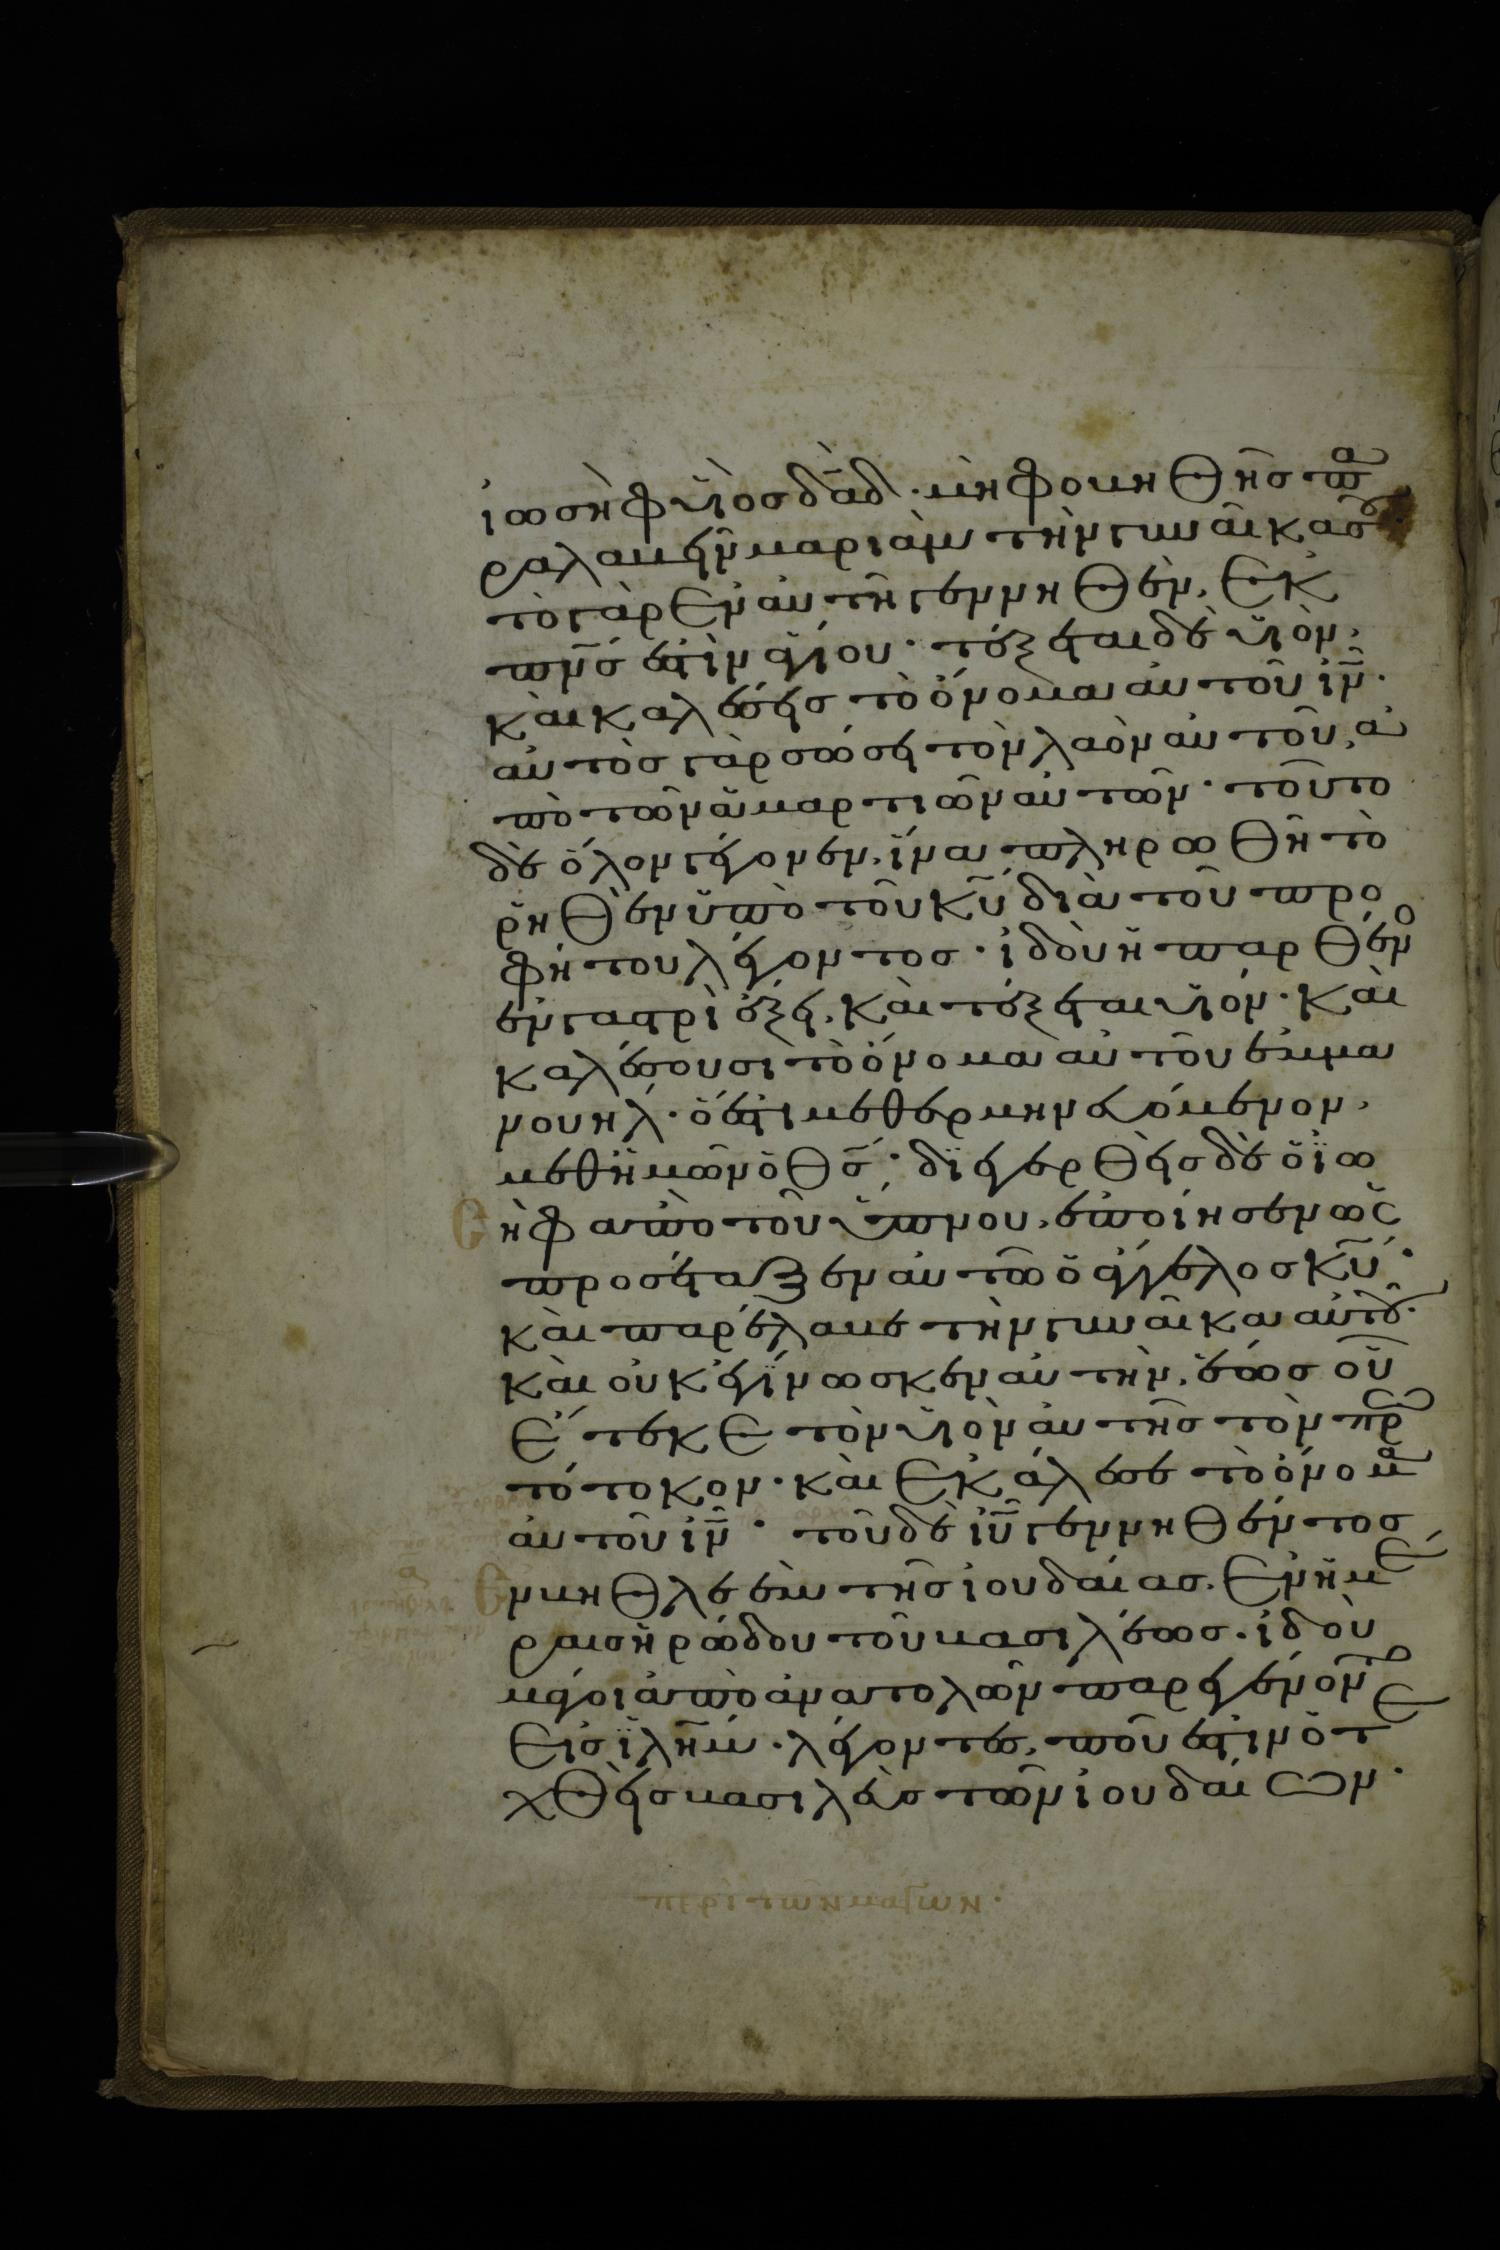 ἰωσὴφ υἱὸς δᾱδ· μὴ φοβηθῆς πα
ραλαβεῖν μαριὰμ τὴν γυναῖκα σου·
τὸ γὰρ ἐν αὐτῆ γεννηθὲν, ἐκ
π̅ν̅ς ἐστὶν ἁγίου· τέξεται δὲ υἱὸν,
καὶ καλέσεις τὸ ὄνομα αὐτοῦ ι̅ν̅·
αὐτὸς γὰρ σώσει τὸν λαὸν αὐτοῦ, ἀ
πὸ τῶν ἁμαρτιῶν αὐτῶν· τοῦτο
δὲ ὅλον γέγονεν, ἵνα πληρωθῆ τὸ
ῥηθὲν ὑπὸ τοῦ κ̅υ̅ διὰ τοῦ προ
φήτου λέγοντος· ἰδοὺ ἡ παρθένο
ἐν γαστρὶ ἕξει, καὶ τέξεται υἱόν· καὶ
καλέσουσι τὸ ὄνομα αὐτοῦ ἐμμα
νουήλ· ὅ ἐστι μεθερμηνευόμενον,
μεθ ἡμῶν ὁ θ̅ς̅· διεγερθεὶς δὲ ὁ ἰω
σὴφ ἀπὸ τοῦ ὕπνου, ἐποίησεν ὡς
προσέταξεν αὐτῶ ὁ ἄγγελος κ̅υ̅·
καὶ παρέλαβε τὴν γυναῖκα αὐτοῦ·
καὶ οὐκ ἐγίνωσκεν αὐτὴν, ἕως οὗ
ἔτεκε τὸν υἱὸν αὐτῆς τὸν πρω
τότοκον· καὶ ἐκάλεσε τὸ ὄνομα
αὐτοῦ ι̅ν̅· τοῦ δὲ ι̅υ̅ γεννηθέντος
ἐν βηθλεὲμ τῆς ἰουδαίας, ἐν ἡμέ
ραις ἡρώδου τοῦ βασιλέως· ἰδοὺ
μάγοι ἀπὸ ἀνατολῶν παρεγένοντο
εἰς ἱλῆμ· λέγοντες, ποῦ ἐστιν ὁ τε
χθεὶς βασιλεὺς τῶν ἰουδαίων·